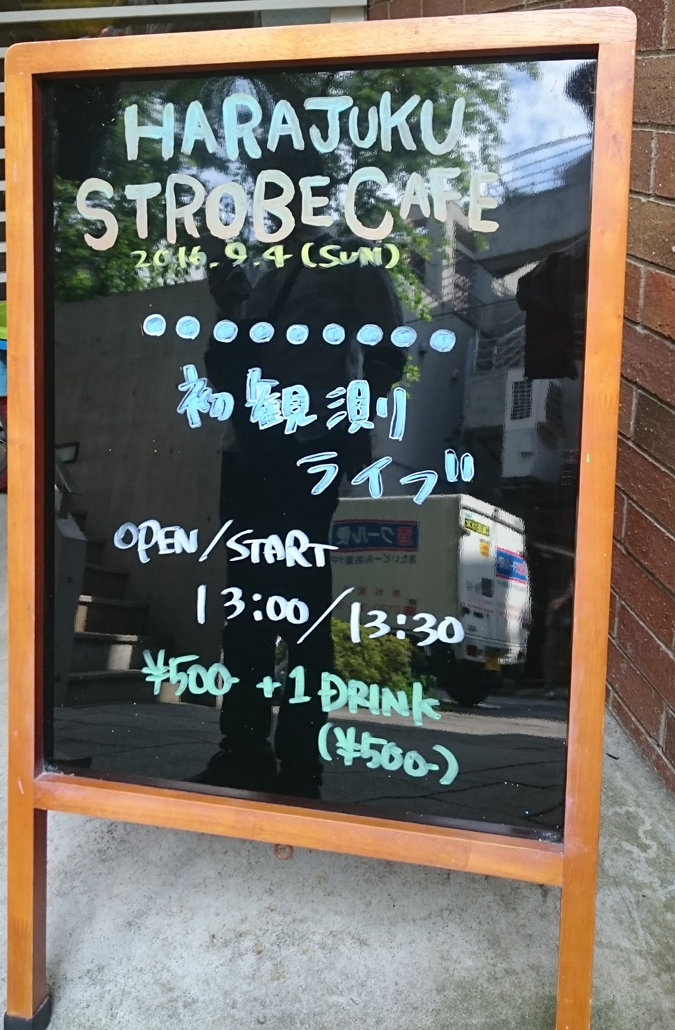 HARAJUKU
STROBE CAFE
2016.9.4 (SUN)
●●●●●●●●●
初観測
ライブ!!
OPEN/START
13:00/13:30
¥500- +1 DRINK
(¥500-)